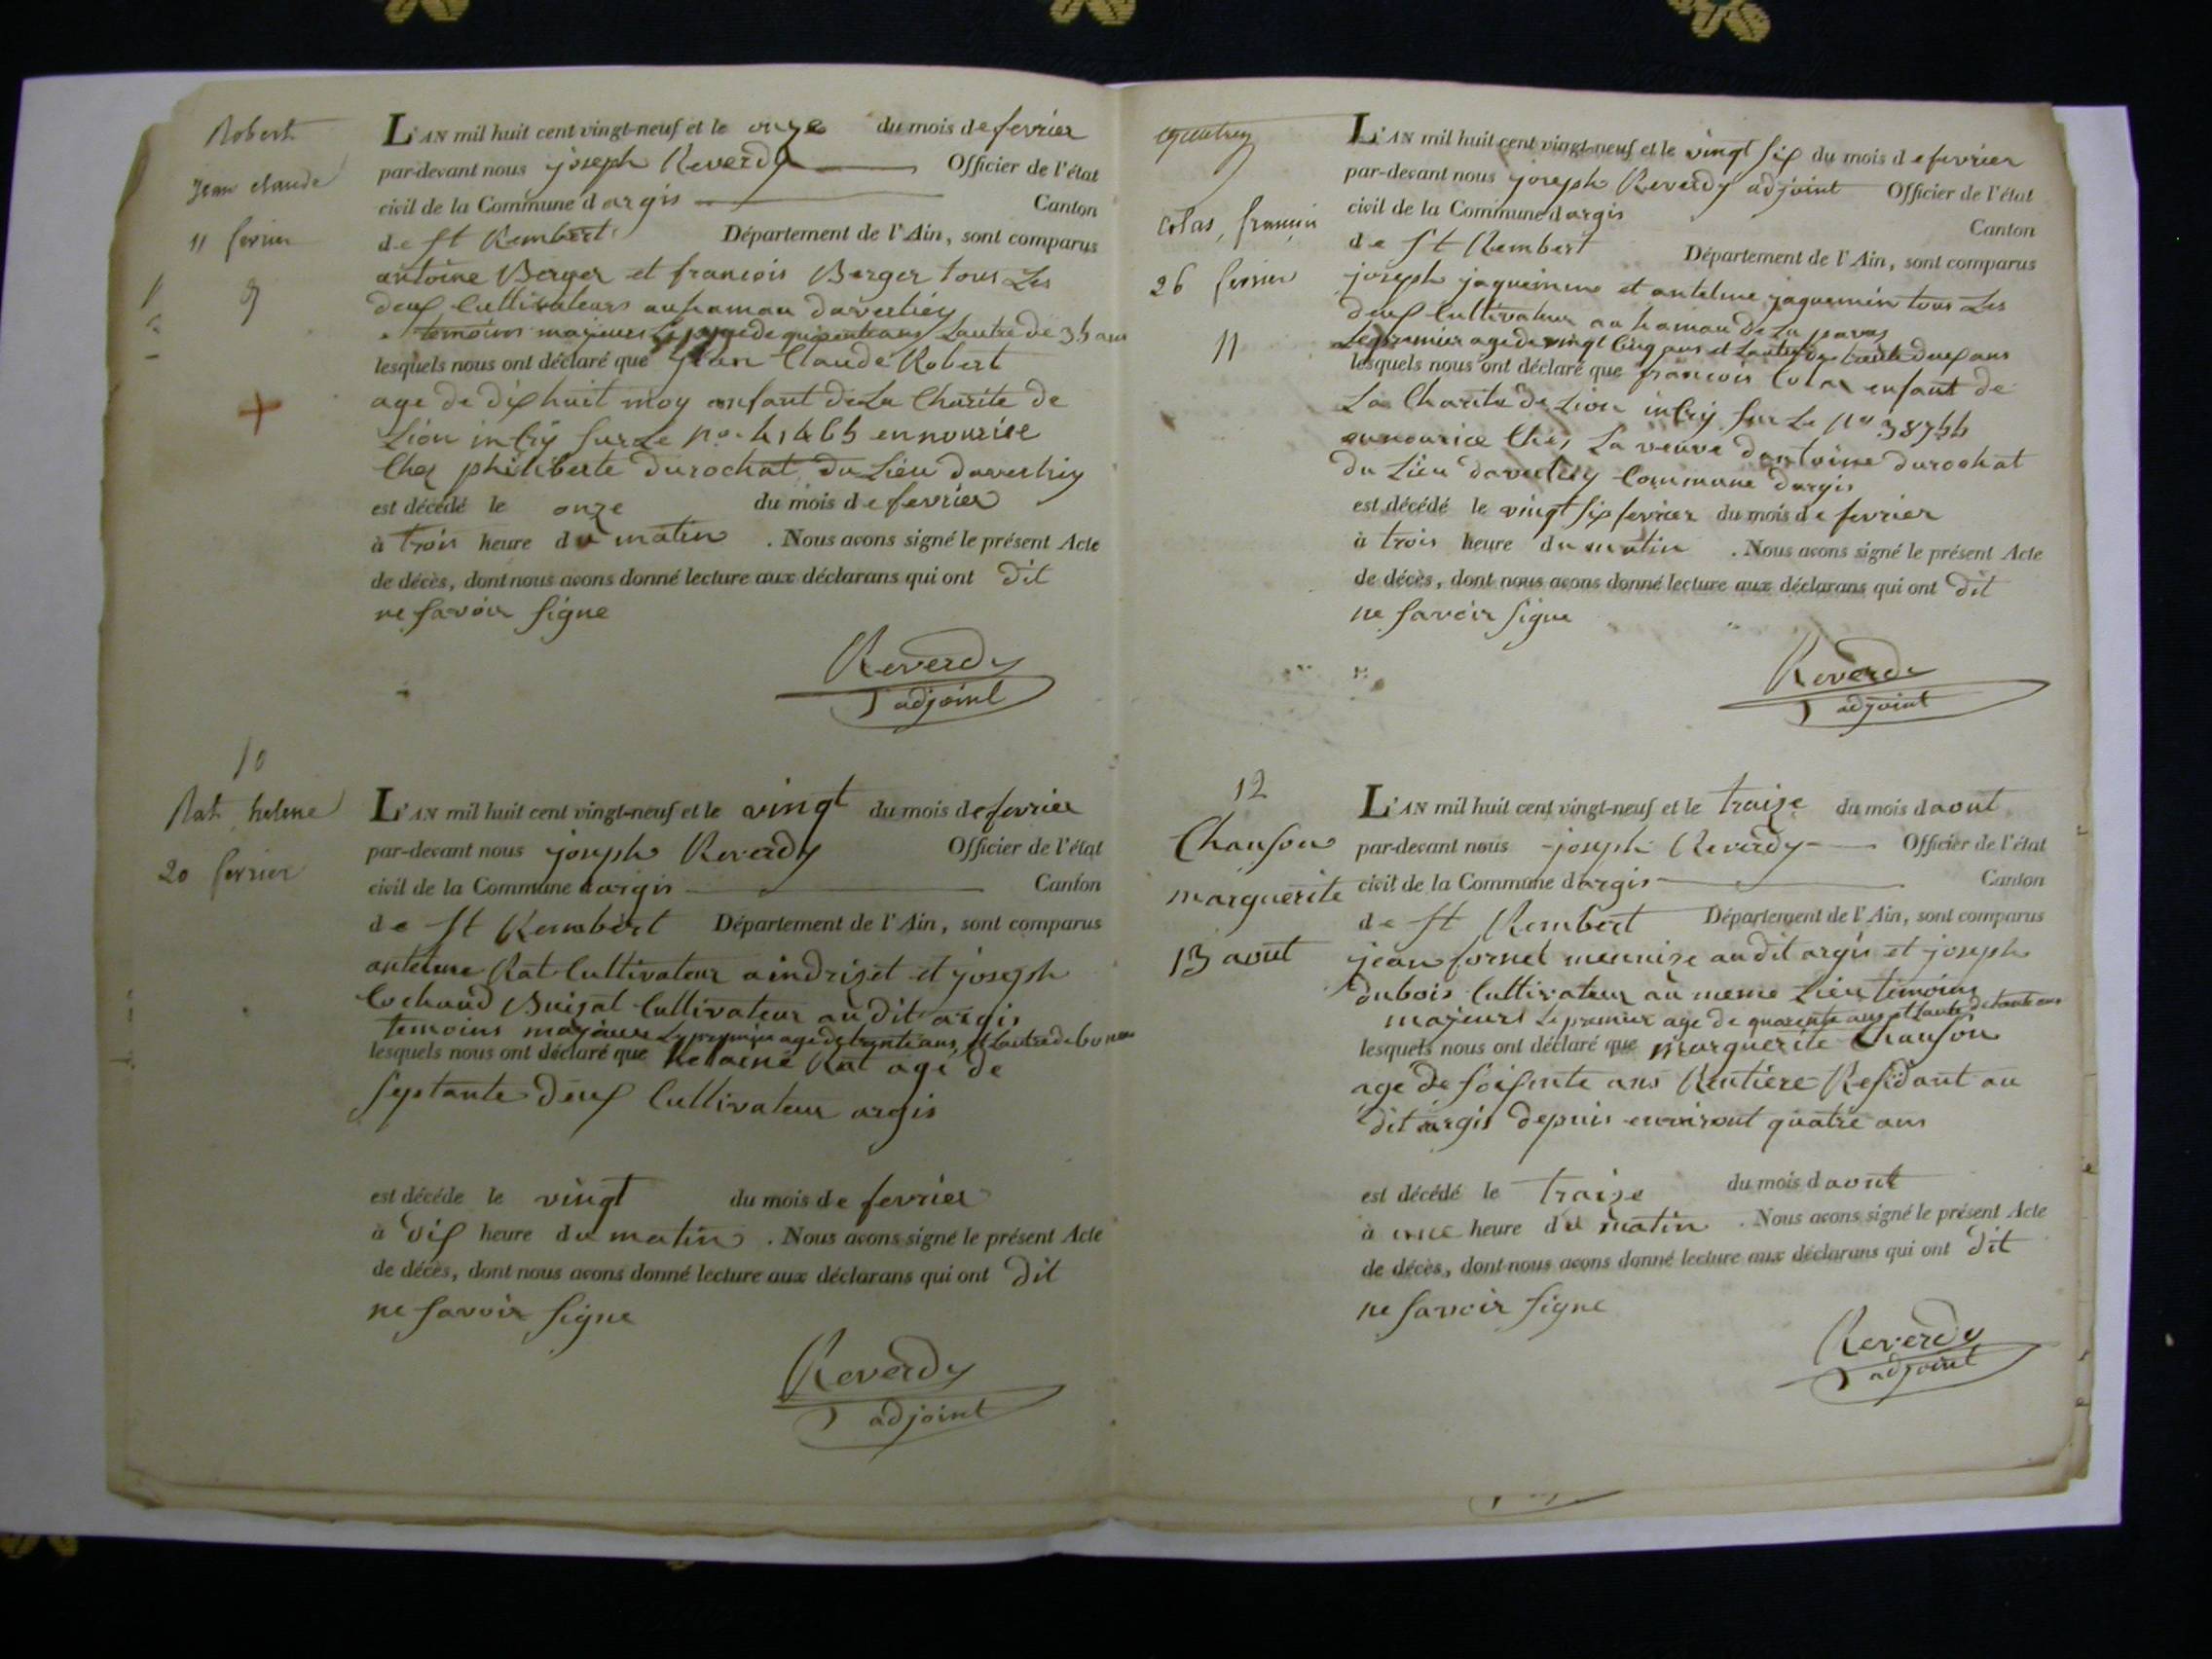 Robert
Jean claude
11 fevrier
9
L'AN mil huit cent vingt-neuf et le onze du mois de fevrier
par-devant nous joseph Reverdy Officier de l'état
civil de la Commune d argis Canton
de St Rembert Département de l'Ain, sont comparus
antoine Berger et francois Berger tous Les
deux Cultivateurs au hamau
temoins majeurs Lautre de 35 ans
lesquels nous ont déclaré que Jean Claude Robert
age de dix huit moy enfant de La Charite de
Lion inscry sur Le no. en nourise
Chez philiberte durochat du Lieu
est décédé le onze du mois de fevrier
à trois heure du matin . Nous avons signé le présent Acte
de décès, dont nous avons donné lecture aux déclarans qui ont dit
ne savoir signe
Reverdy
adjoint
10
Rat helene
20 fevrier
L'AN mil huit cent vingt-neuf et le vingt du mois de fevrier
par-devant nous joseph Reverdy Officier de l'état
civil de la Commune dargis Canton
de St Rembert Département de l'Ain, sont comparus
antelme Rat Cultivateur a indrizet et joseph
Cochaud Buizat Cultivateur au dit argis
temoins majeurs Le premier age de trente ans, et Lautre de
lesquels nous ont déclaré que helaine Rat age de
septante deux Cultivateur argis
est décédé le vingt du mois de fevrier
à dix heure du matin . Nous avons signé le présent Acte
de décès, dont nous avons donné lecture aux déclarans qui ont dit
ne savoir signe
Reverdy
adjoint
colas, françois
26 fevrier
11
L'AN mil huit cent vingt-neuf et le vingt six du mois de fevrier
par-devant nous joseph Reverdy adjoint Officier de l'état
civil de la Commune dargis Canton
de St Rembert Département de l'Ain, sont comparus
joseph jaquemin et antelme jaquemin tous Les
deux Cultivateur au hamau de La
Le premier age de vingt cinq ans et Lautre de trente deux ans
lesquels nous ont déclaré que francois Colas enfant de
La Charite de Lion inscry sur Le no
en nourice Chez La veuve dantoine durochat
du Lieu Commune dargis
est décédé le vingt six fevrier du mois de fevrier
à trois heure du matin . Nous avons signé le présent Acte
de décès, dont nous avons donné lecture aux déclarans qui ont dit
ne savoir signe
Reverdy
adjoint
12
Chanson
marguerite
13 aout
L'AN mil huit cent vingt-neuf et le traize du mois d aout
par-devant nous joseph Reverdy Officier de l'état
civil de la Commune dargis Canton
de St Rembert Département de l'Ain, sont comparus
jean fornet au dit argis et joseph
dubois Cultivateur au meme Lieu temoins
majeurs Le premier age de quarente ans et Lautre de trente ans
lesquels nous ont déclaré que marguerite Chanson
age de soisente ans Rentiere Residant au
dit argis depuis environt quatre ans
est décédé le traize du mois d aout
à une heure du matin . Nous avons signé le présent Acte
de décès, dont nous avons donné lecture aux déclarans qui ont dit
ne savoir signe
Reverdy
adjoint